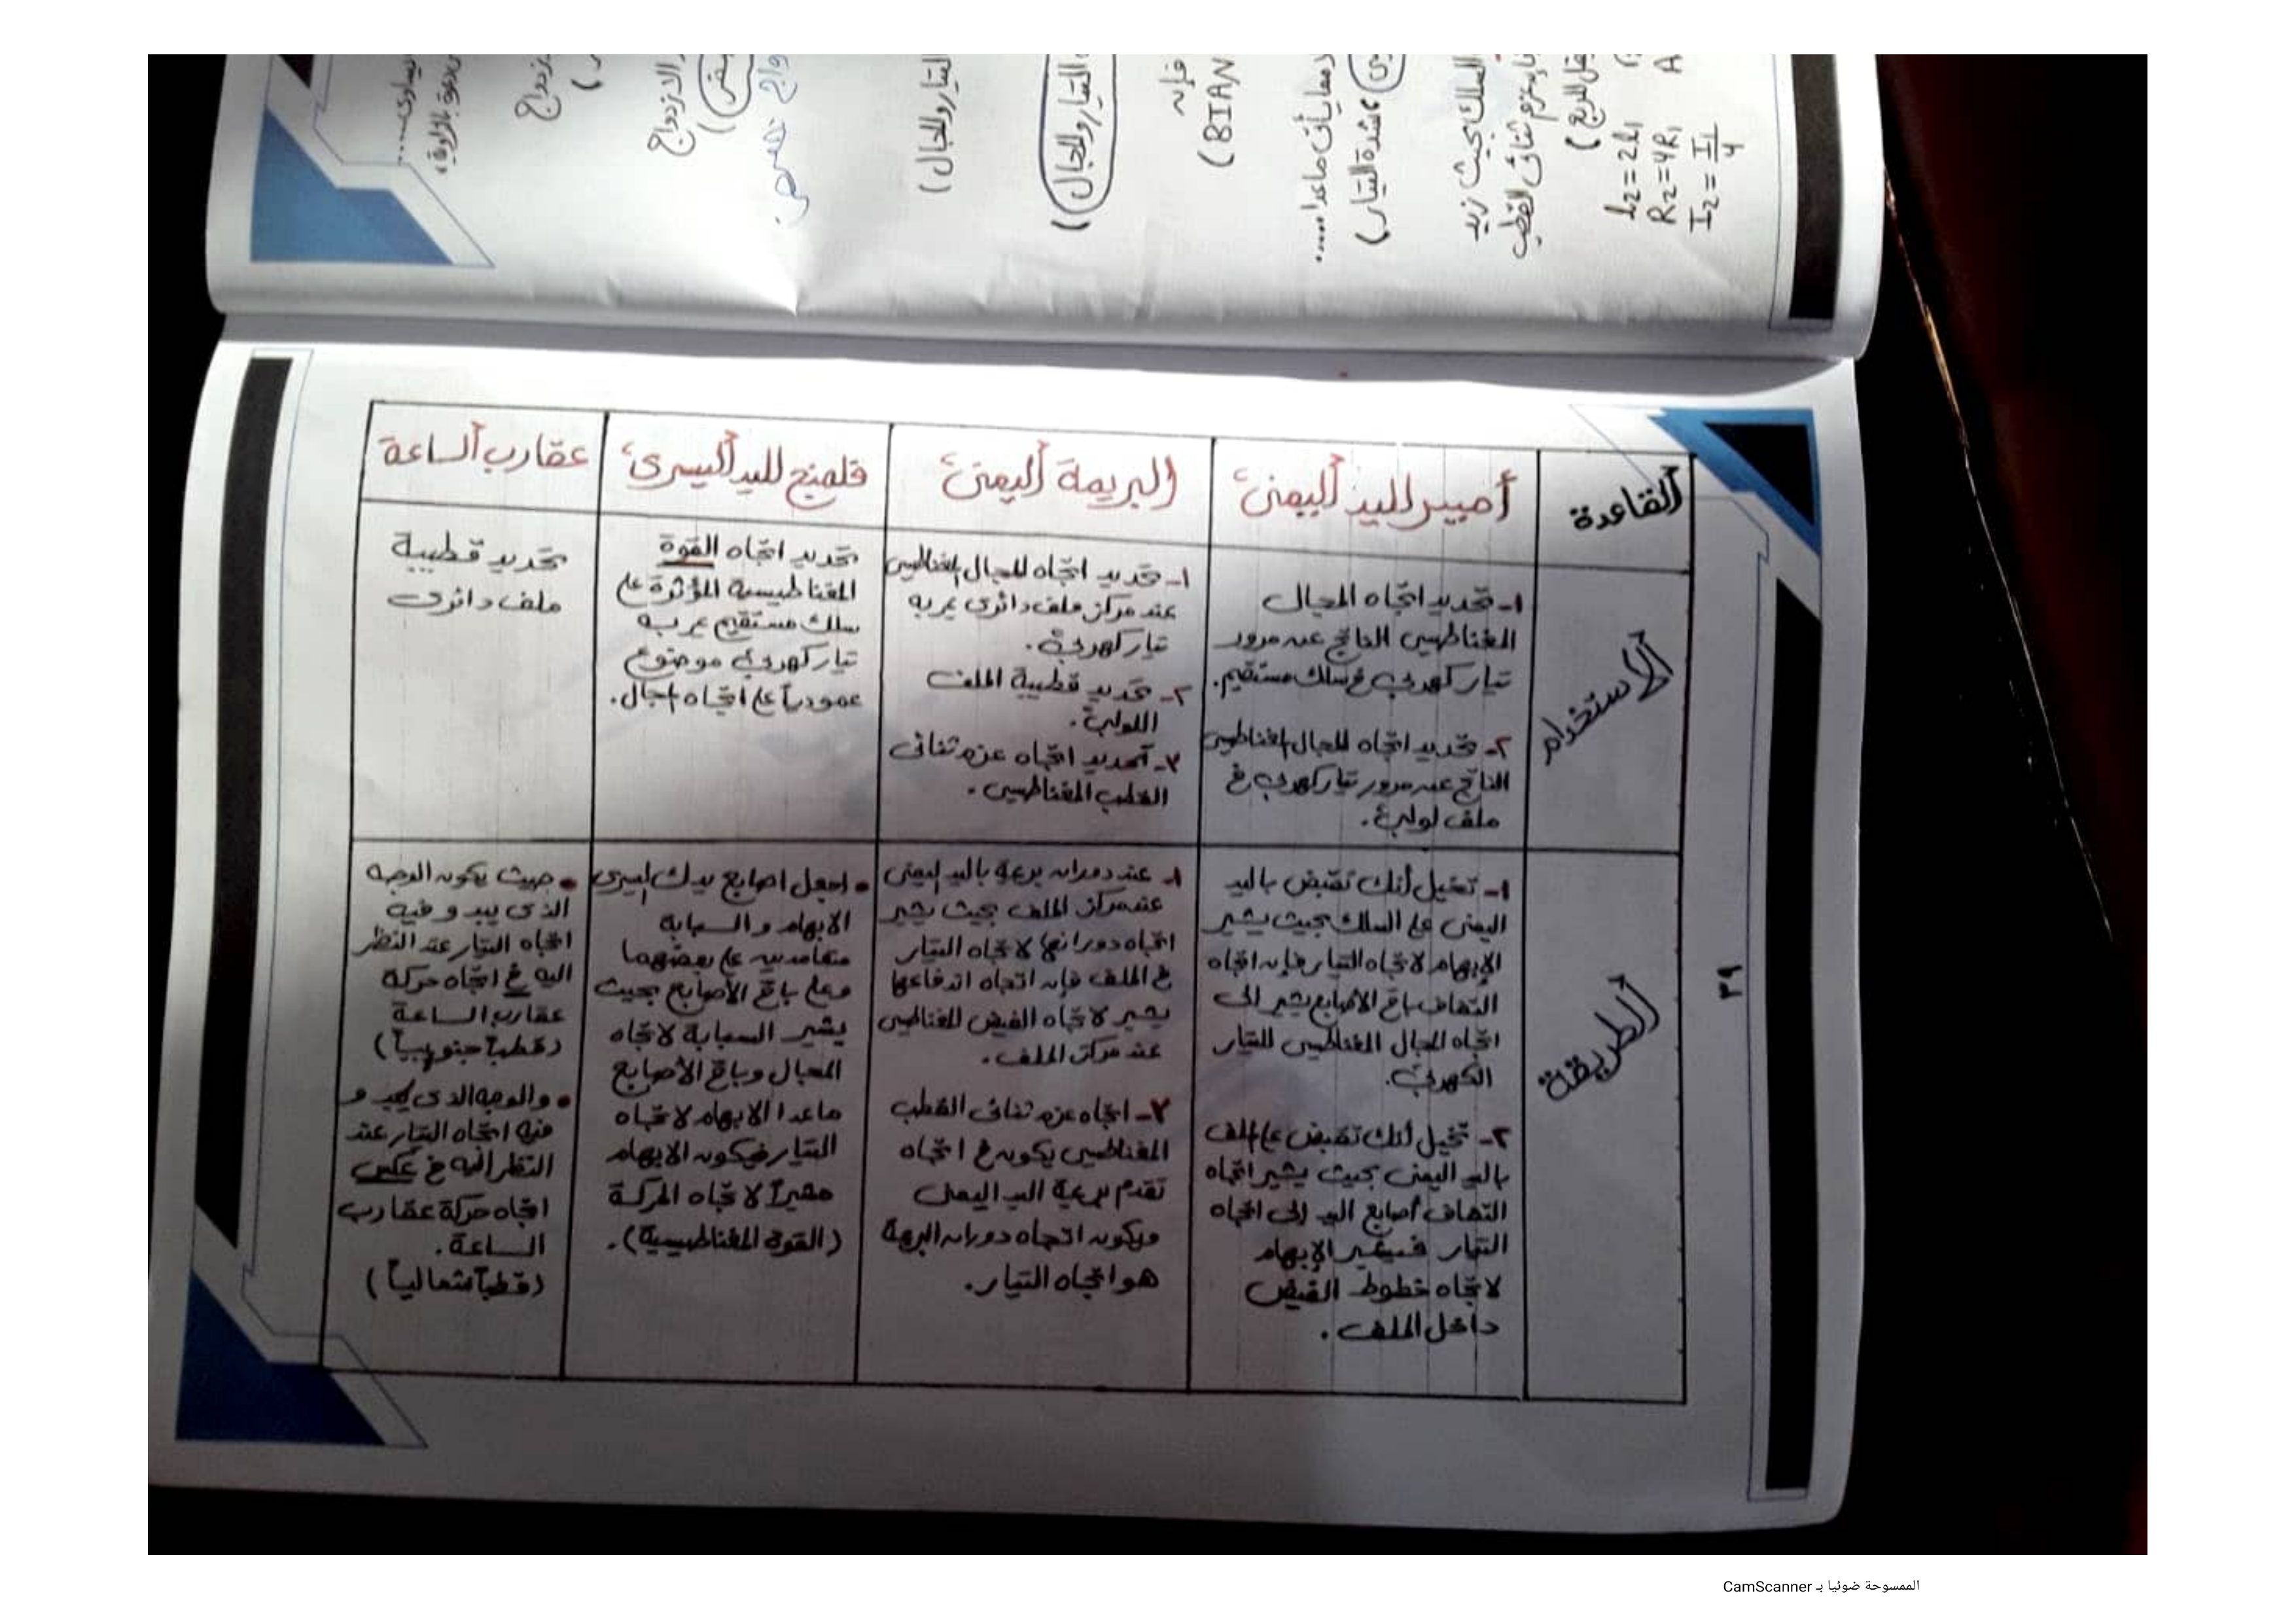 القاعدة
أمبير لليد اليمنى
البريمة اليمنى
فلمنج لليد اليسرى
عقارب الساعة
الاستخدام
١- تحديد اتجاه المجال
المغناطيسى الناتج عن مرور
تيار كهربى فى سلك مستقيم.
٢- تحديد اتجاه المجال المغناطيسى
الناتج عن مرور تيار كهربى فى
ملف لولبى.
١- تحديد اتجاه المجال المغناطيسى
عند مركز ملف دائرى يمر به
تيار كهربى.
٢- تحديد قطبية الملف
اللولبى.
٣- تحديد اتجاه عزم ثنائى
القطب المغناطيسى.
تحديد اتجاه القوة
المغناطيسية المؤثرة على
سلك مستقيم يمر به
تيار كهربى موضوع
عمودياً على اتجاه المجال.
تحديد قطبية
ملف دائرى
الطريقة
١- تخيل أنك تقبض باليد
اليمنى على السلك بحيث يشير
الإبهام لاتجاه التيار فإن اتجاه
التفاف باقى الأصابع يشير إلى
اتجاه المجال المغناطيسى للتيار
الكهربى.
٢- تخيل أنك تقبض على الملف
باليد اليمنى بحيث يشير اتجاه
التفاف أصابع اليد إلى اتجاه
التيار فيشير الإبهام
لاتجاه خطوط الفيض
داخل الملف.
١- عند دوران بريمة باليد اليمنى
عند مركز الملف بحيث يشير
اتجاه دورانها لاتجاه التيار
فى الملف فإن اتجاه اندفاعها
يشير لاتجاه الفيض المغناطيسى
عند مركز الملف.
٢- اتجاه عزم ثنائى القطب
المغناطيسى يكون فى اتجاه
تقدم بريمة اليد اليمنى
ويكون اتجاه دوران البريمة
هو اتجاه التيار.
• اجعل اصابع يدك اليسرى
الابهام والسبابة
متعامدين على بعضهما
وعلى باقى الأصابع بحيث
يشير السبابة لاتجاه
المجال وباقى الأصابع
ماعدا الابهام لاتجاه
التيار فيكون الابهام
مشيراً لاتجاه الحركة
(القوة المغناطيسية).
• حيث يكون الوجه
الذى يبدو فيه
اتجاه التيار عند النظر
اليه فى اتجاه حركة
عقارب الساعة
(قطباً جنوبياً)
• والوجه الذى يبدو
فيه اتجاه التيار عند
النظر اليه فى عكس
اتجاه حركة عقارب
الساعة.
(قطباً شمالياً)
٣٩
التيار والمجال)
التيار والمجال))
فإن
(BIAN
ما يأتى ماعدا .....
شدة التيار)
السلك بحيث تزيد
ثنائى القطب
تقل للربع)
l₂ = 2l₁
R₂ = 4R₁
I₂ = I₁/4
الازدواج
الممسوحة ضوئيا بـ CamScanner